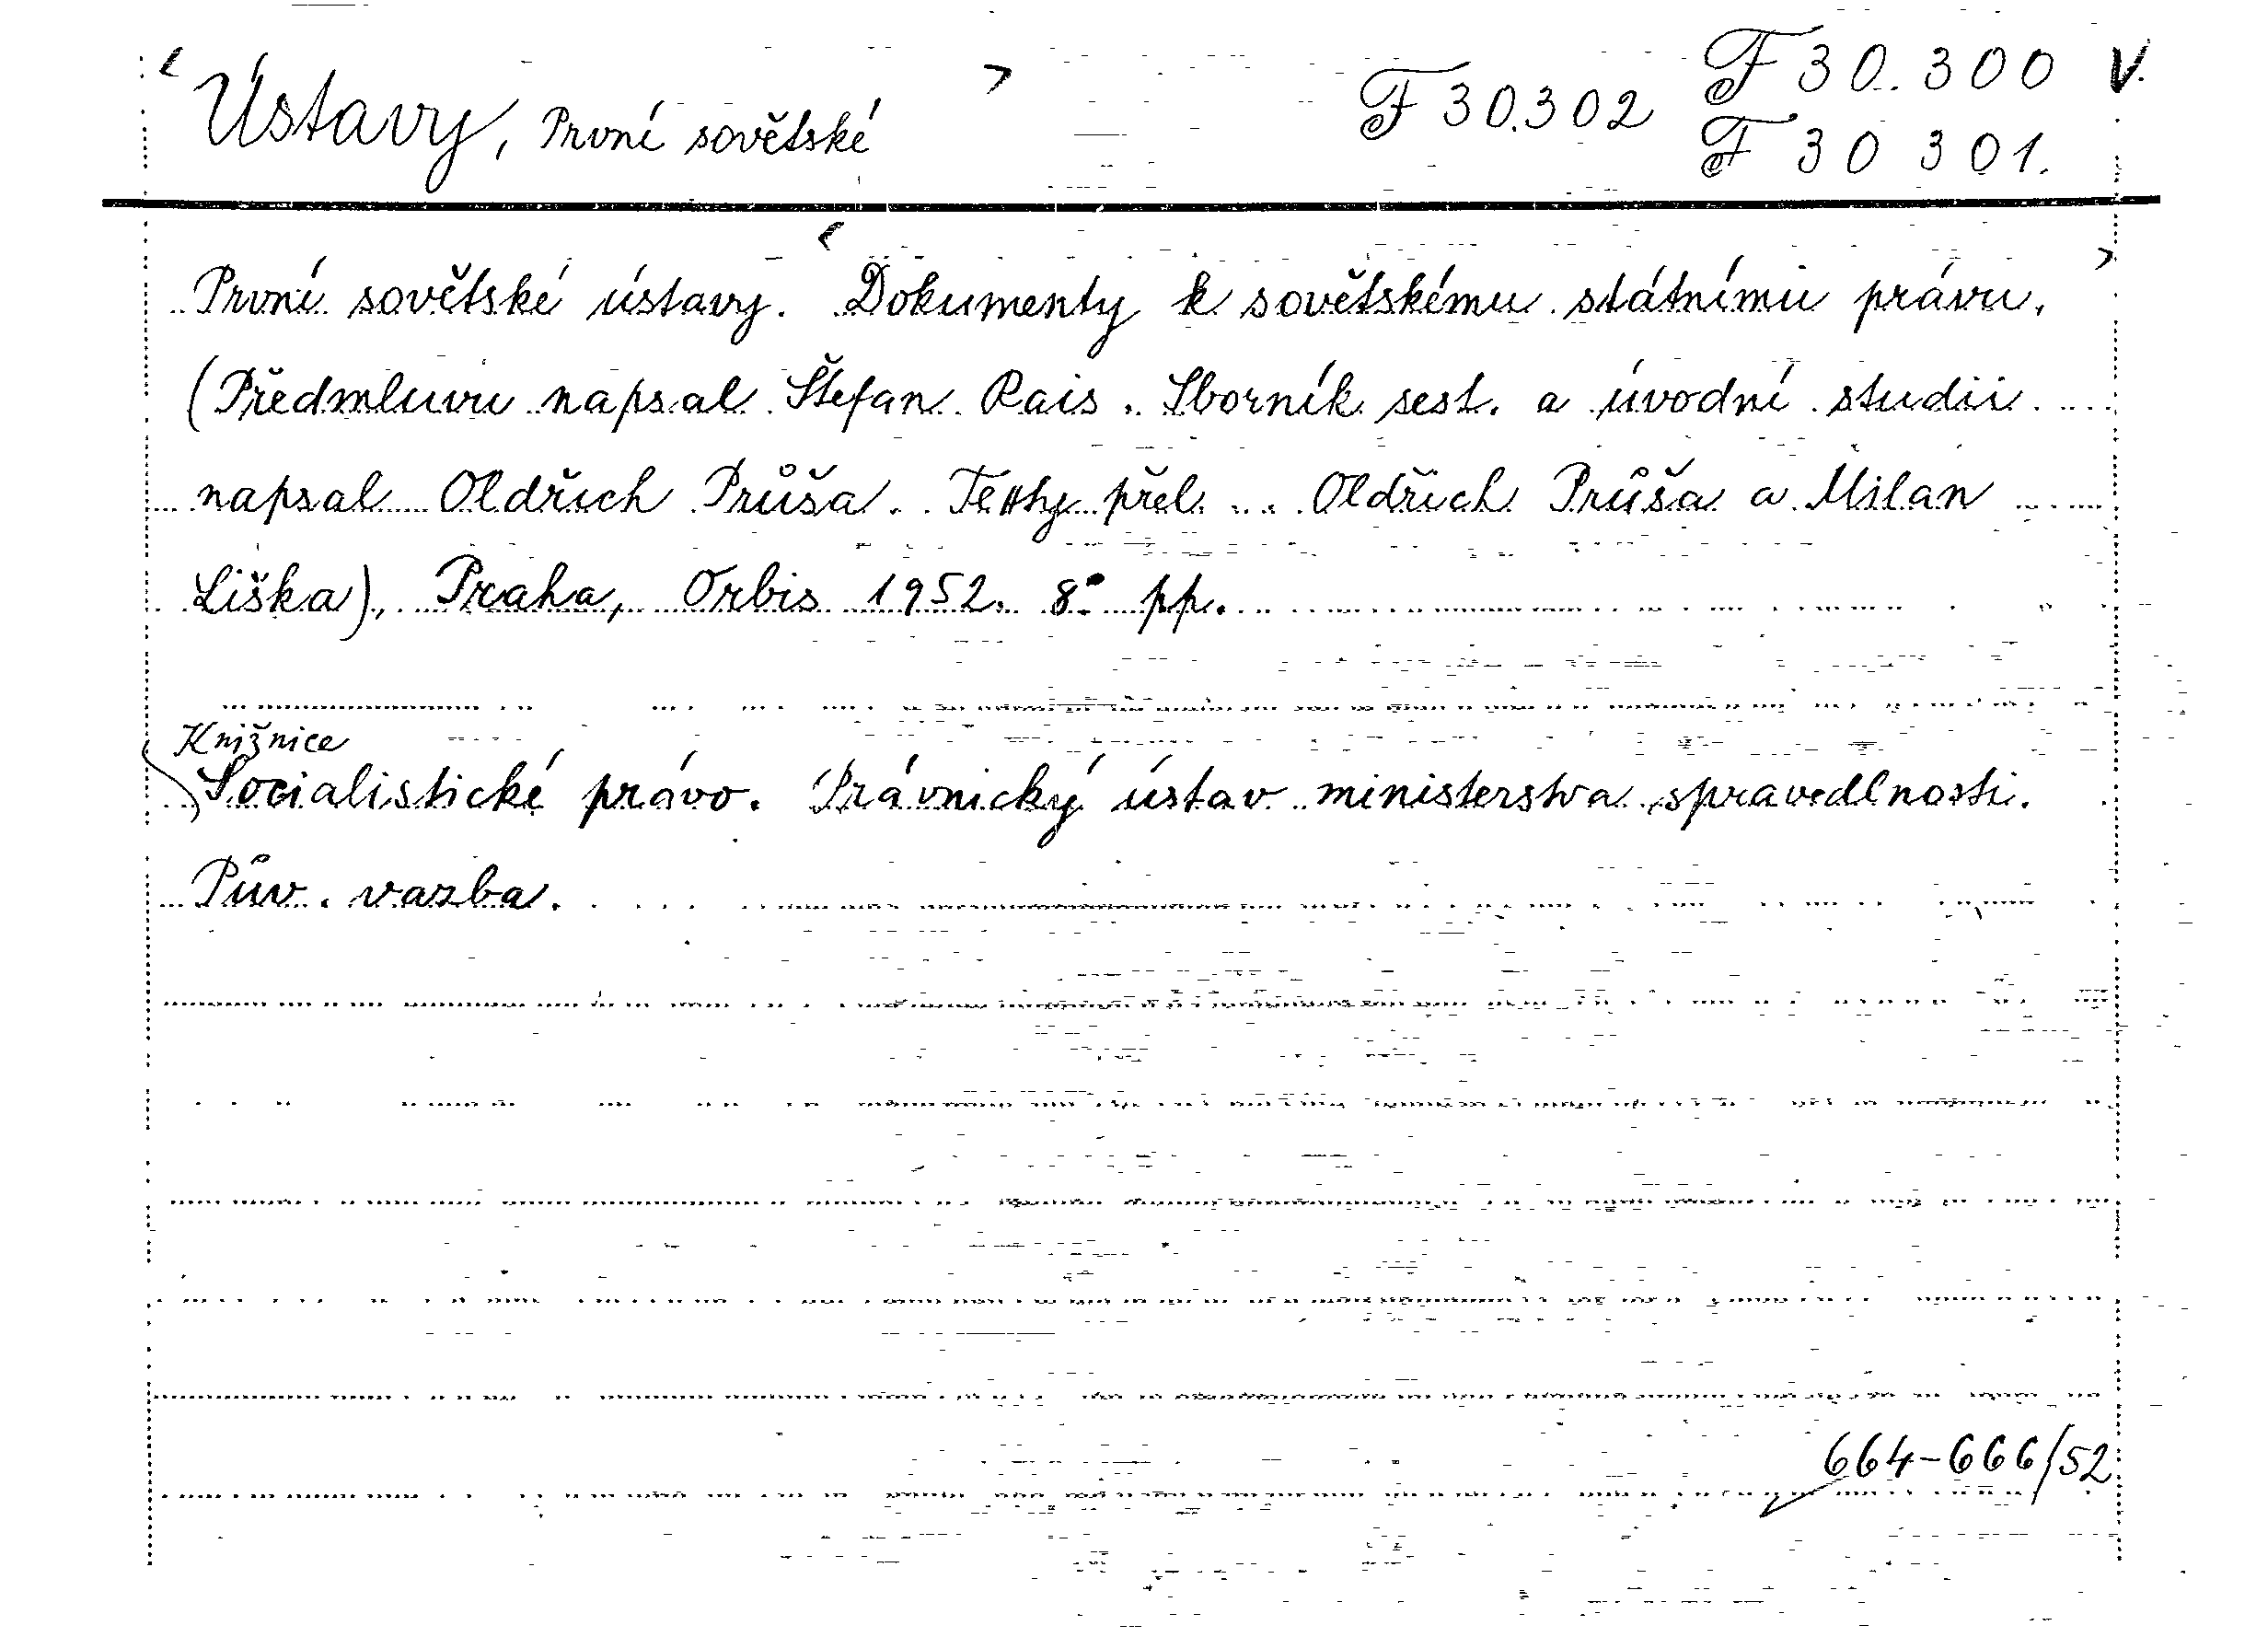 < Ústavy, První sovětské > F 30.302 F 30.300 V.
F 30 301.
První sovětské ústavy. < Dokumenty k sovětskému státnímu právu. >
(Předmluvu napsal Štefan Rais. Sborník sest. a úvodní studii
napsal Oldřich Průša. Texty přel. ... Oldřich Průša a Milan
Liška), Praha, Orbis 1952. 8° pp.
Knižnice
Socialistické právo. Právnický ústav ministerstva spravedlnosti.
Pův. vazba.
664-666/52